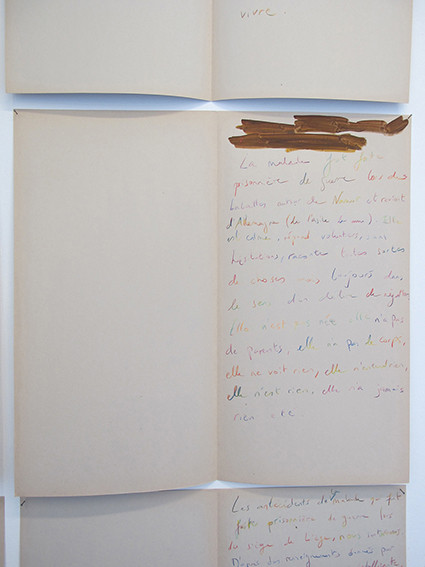 vivre.
La malade fut faite
prisonnière de guerre lors des
batailles autour de Nancy, et revient
d'Allemagne (de l'asile de ). Elle
est calme, répond volontiers, sans
hésitations, raconte toutes sortes
de choses mais toujours dans
le sens d'un délire de négation
Elle n'est pas née, elle n'a pas
de parents, elle n'a pas de corps,
elle ne voit rien, elle n'entend rien,
elle n'est rien, elle n'a jamais
rien été
Les antécédents de malade, qui fut
faite prisonnière de guerre lors
du siège de Liège, nous
D'après des renseignements donnés par